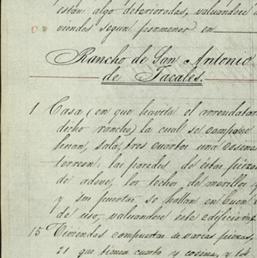 están algo deterioradas, valuandose
viendas segun pormenor en
Rancho de San Antonio
de Tacales.
1 Casa (en que habita el arrendatar
dicho rancho) la cual se compone
sala, tres cuartos una cosina
torreon, las paredes de estas piezas
de adove, los techos de morillos y
y sin puertas, se hallan en buen
de uso, valuandose este edificio
15 Viviendas compuestas de varias piezas,
21 que tienen cuarto y cosina, y